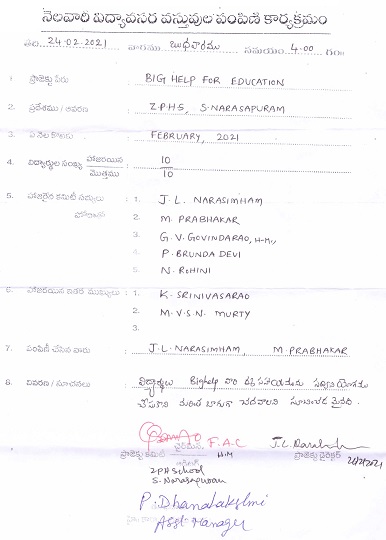 నెలవారి విద్యావసర వస్తువుల పంపిణి కార్యక్రమం
తేది 24.02.2021 వారము బుధవారము సమయం 4.00 గం
1. ప్రాజెక్టు పేరు : BIG HELP FOR EDUCATION
2. ప్రదేశము / ఆవరణ : Z.P.H.S, S.NARASAPURAM
3. ఏ నెల కొరకు : FEBRUARY, 2021
4. విద్యార్థుల సంఖ్య హాజరయిన : 10
మొత్తము 10
5. హాజరైన కమిటీ సభ్యులు : 1. J.L. NARASIMHAM
హోదాతో 2. M. PRABHAKAR
3. G.V. GOVINDARAO, H.M.,
4. P. BRUNDA DEVI
5. N. ROHINI
6. హాజరయిన ఇతర ముఖ్యులు : 1. K. SRINIVASARAO
2. M.V.S.N. MURTY
3.
7. పంపిణీ చేసిన వారు : J.L. NARASIMHAM, M. PRABHAKAR
8. వివరణ / సూచనలు : విద్యార్థులు Bighelp వారి ఈ సహాయమును సద్వినియోగము
చేసుకొని మరింత బాగుగా చదవాలని సూచించడమైనది.
F.A.C
ప్రాజెక్టు కమిటీ చైర్మన్ H.M ప్రాజెక్టు డైరెక్టర్ 24/2/2021
ZPH School
S. Narasapuram
P. Dhanalakshmi
Asst Manager